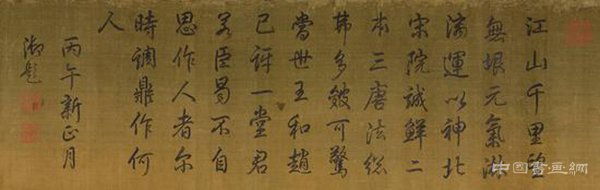 江山千里望
無垠元氣淋
漓運以神北
宋院誠鮮二
本三唐法總
弗多皴可驚
當世王和趙
已訝一堂君
若臣曷不自
思作人者尔
時調鼎作何
人
丙午新正月
御題
中國書畫網